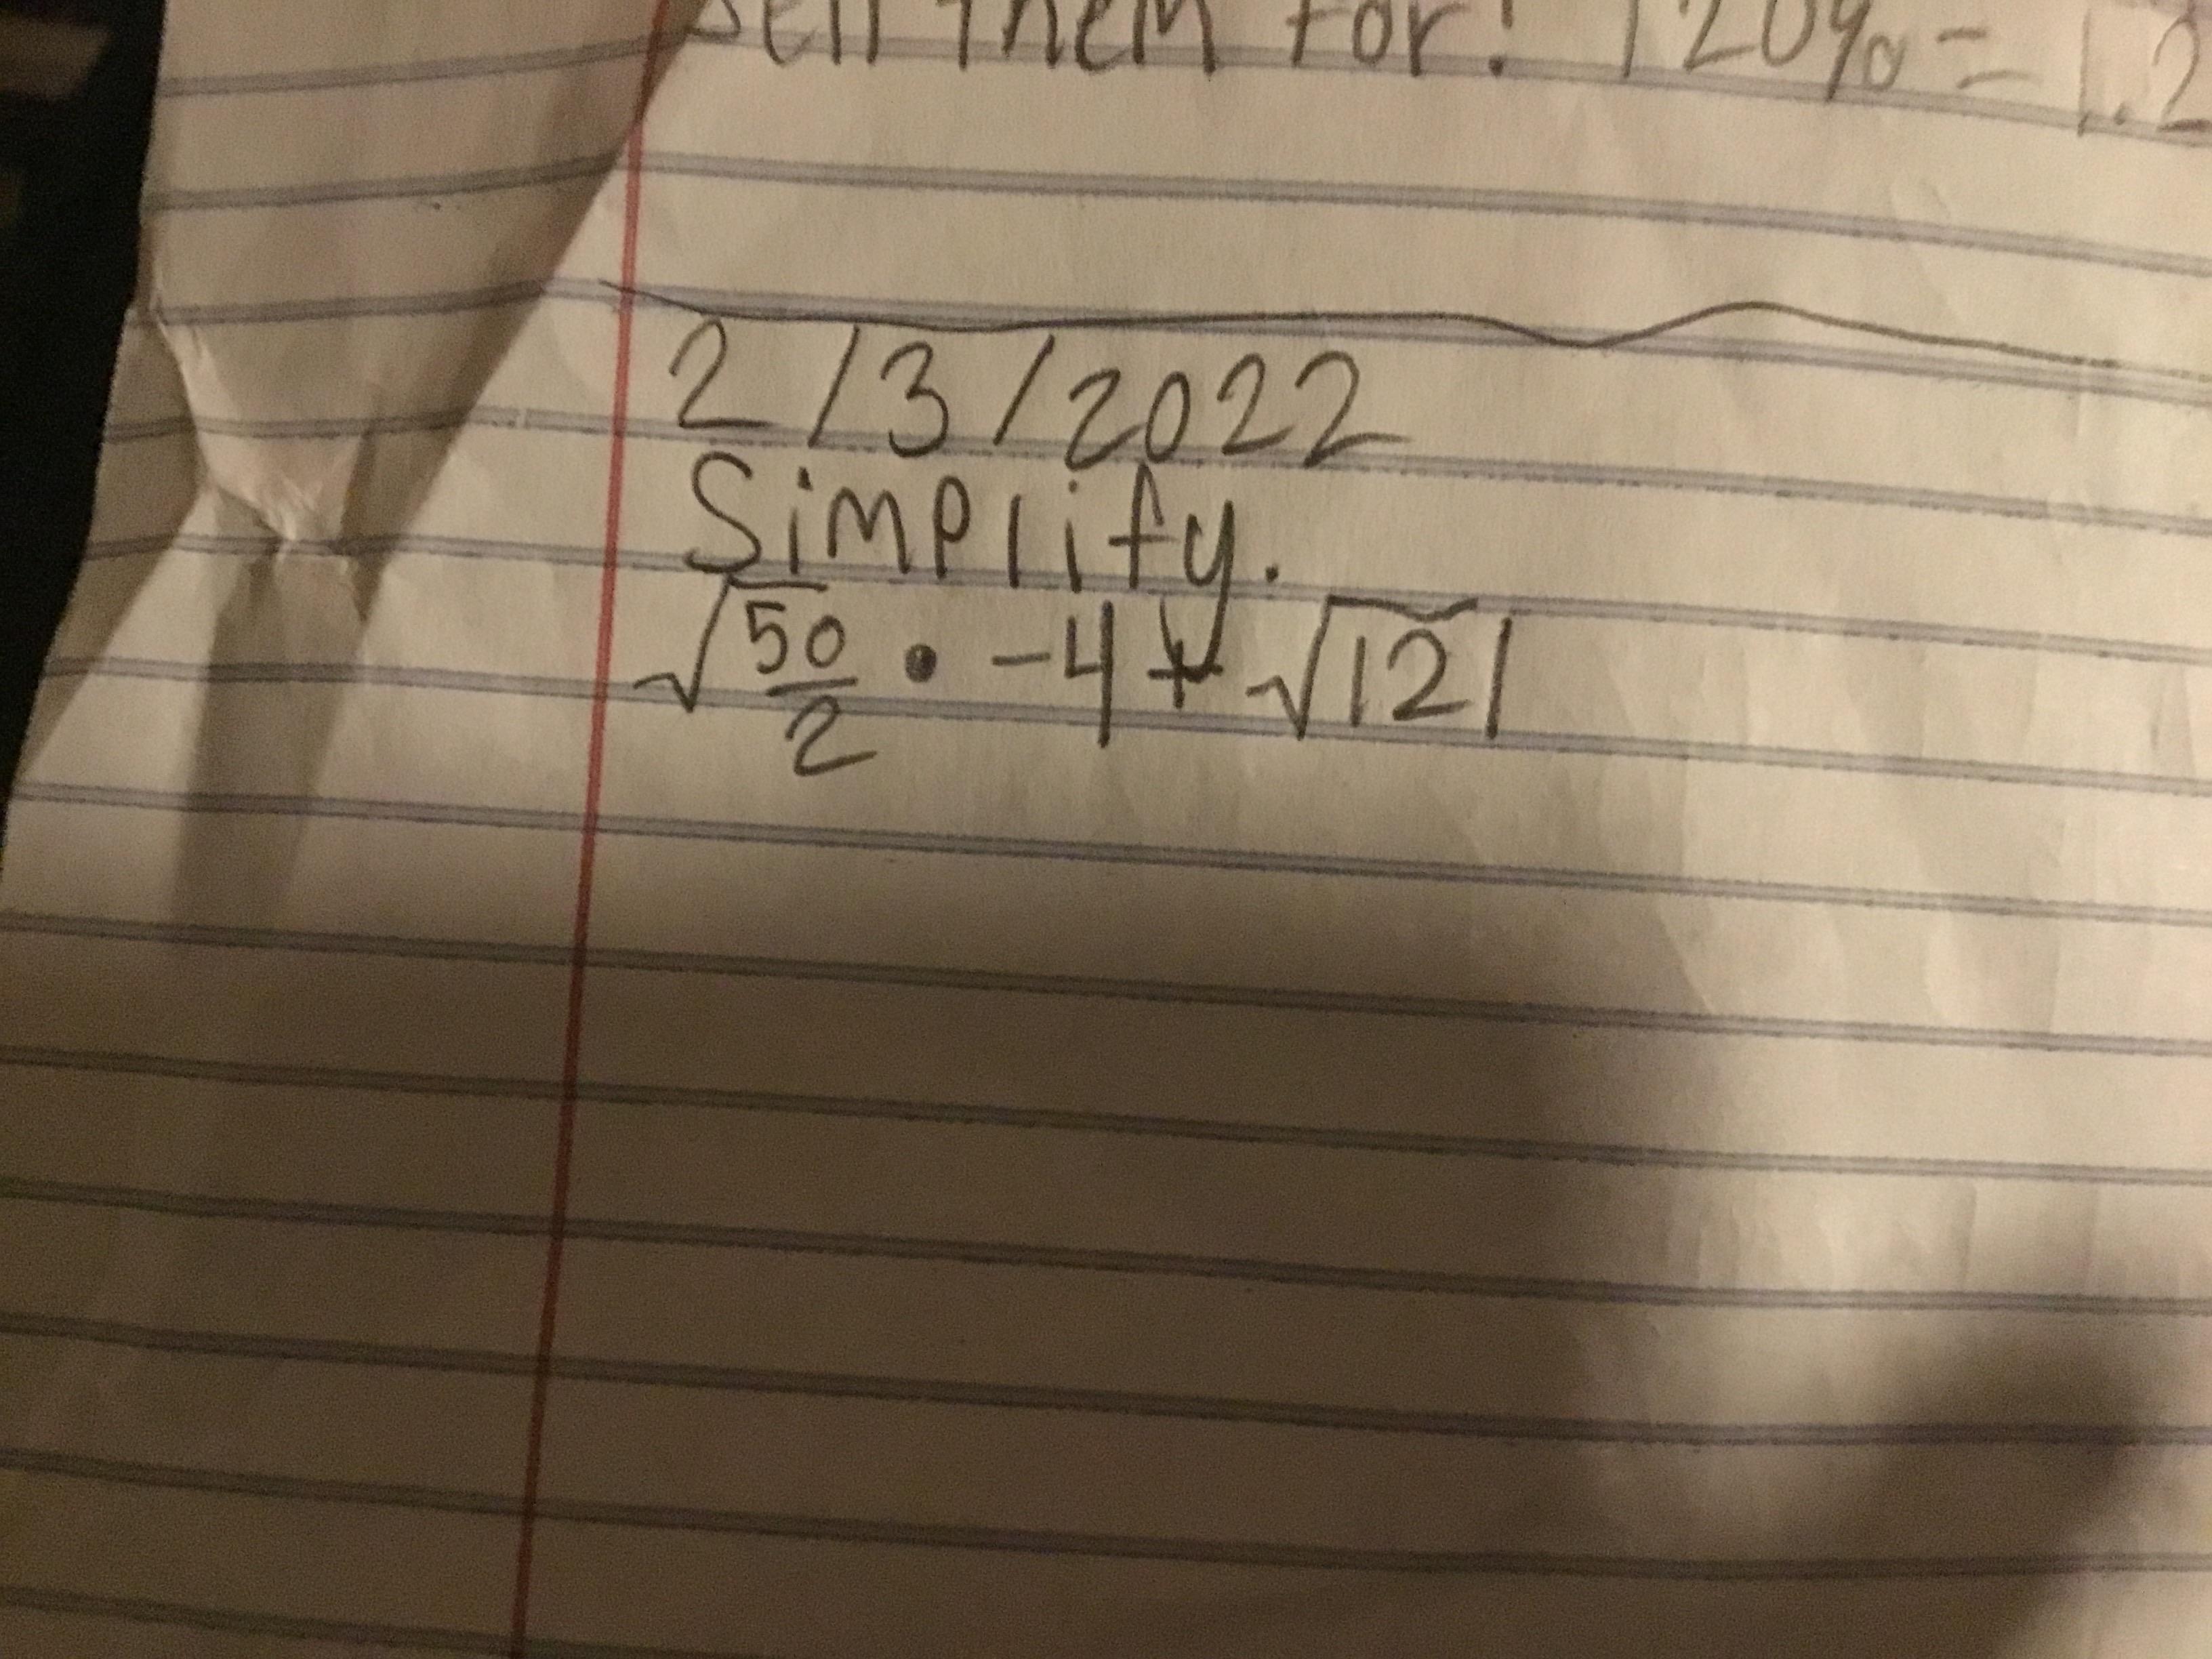 sell them for? 120% = 1.2
2/3/2022
Simplify.
√50/2 • -4 + √121